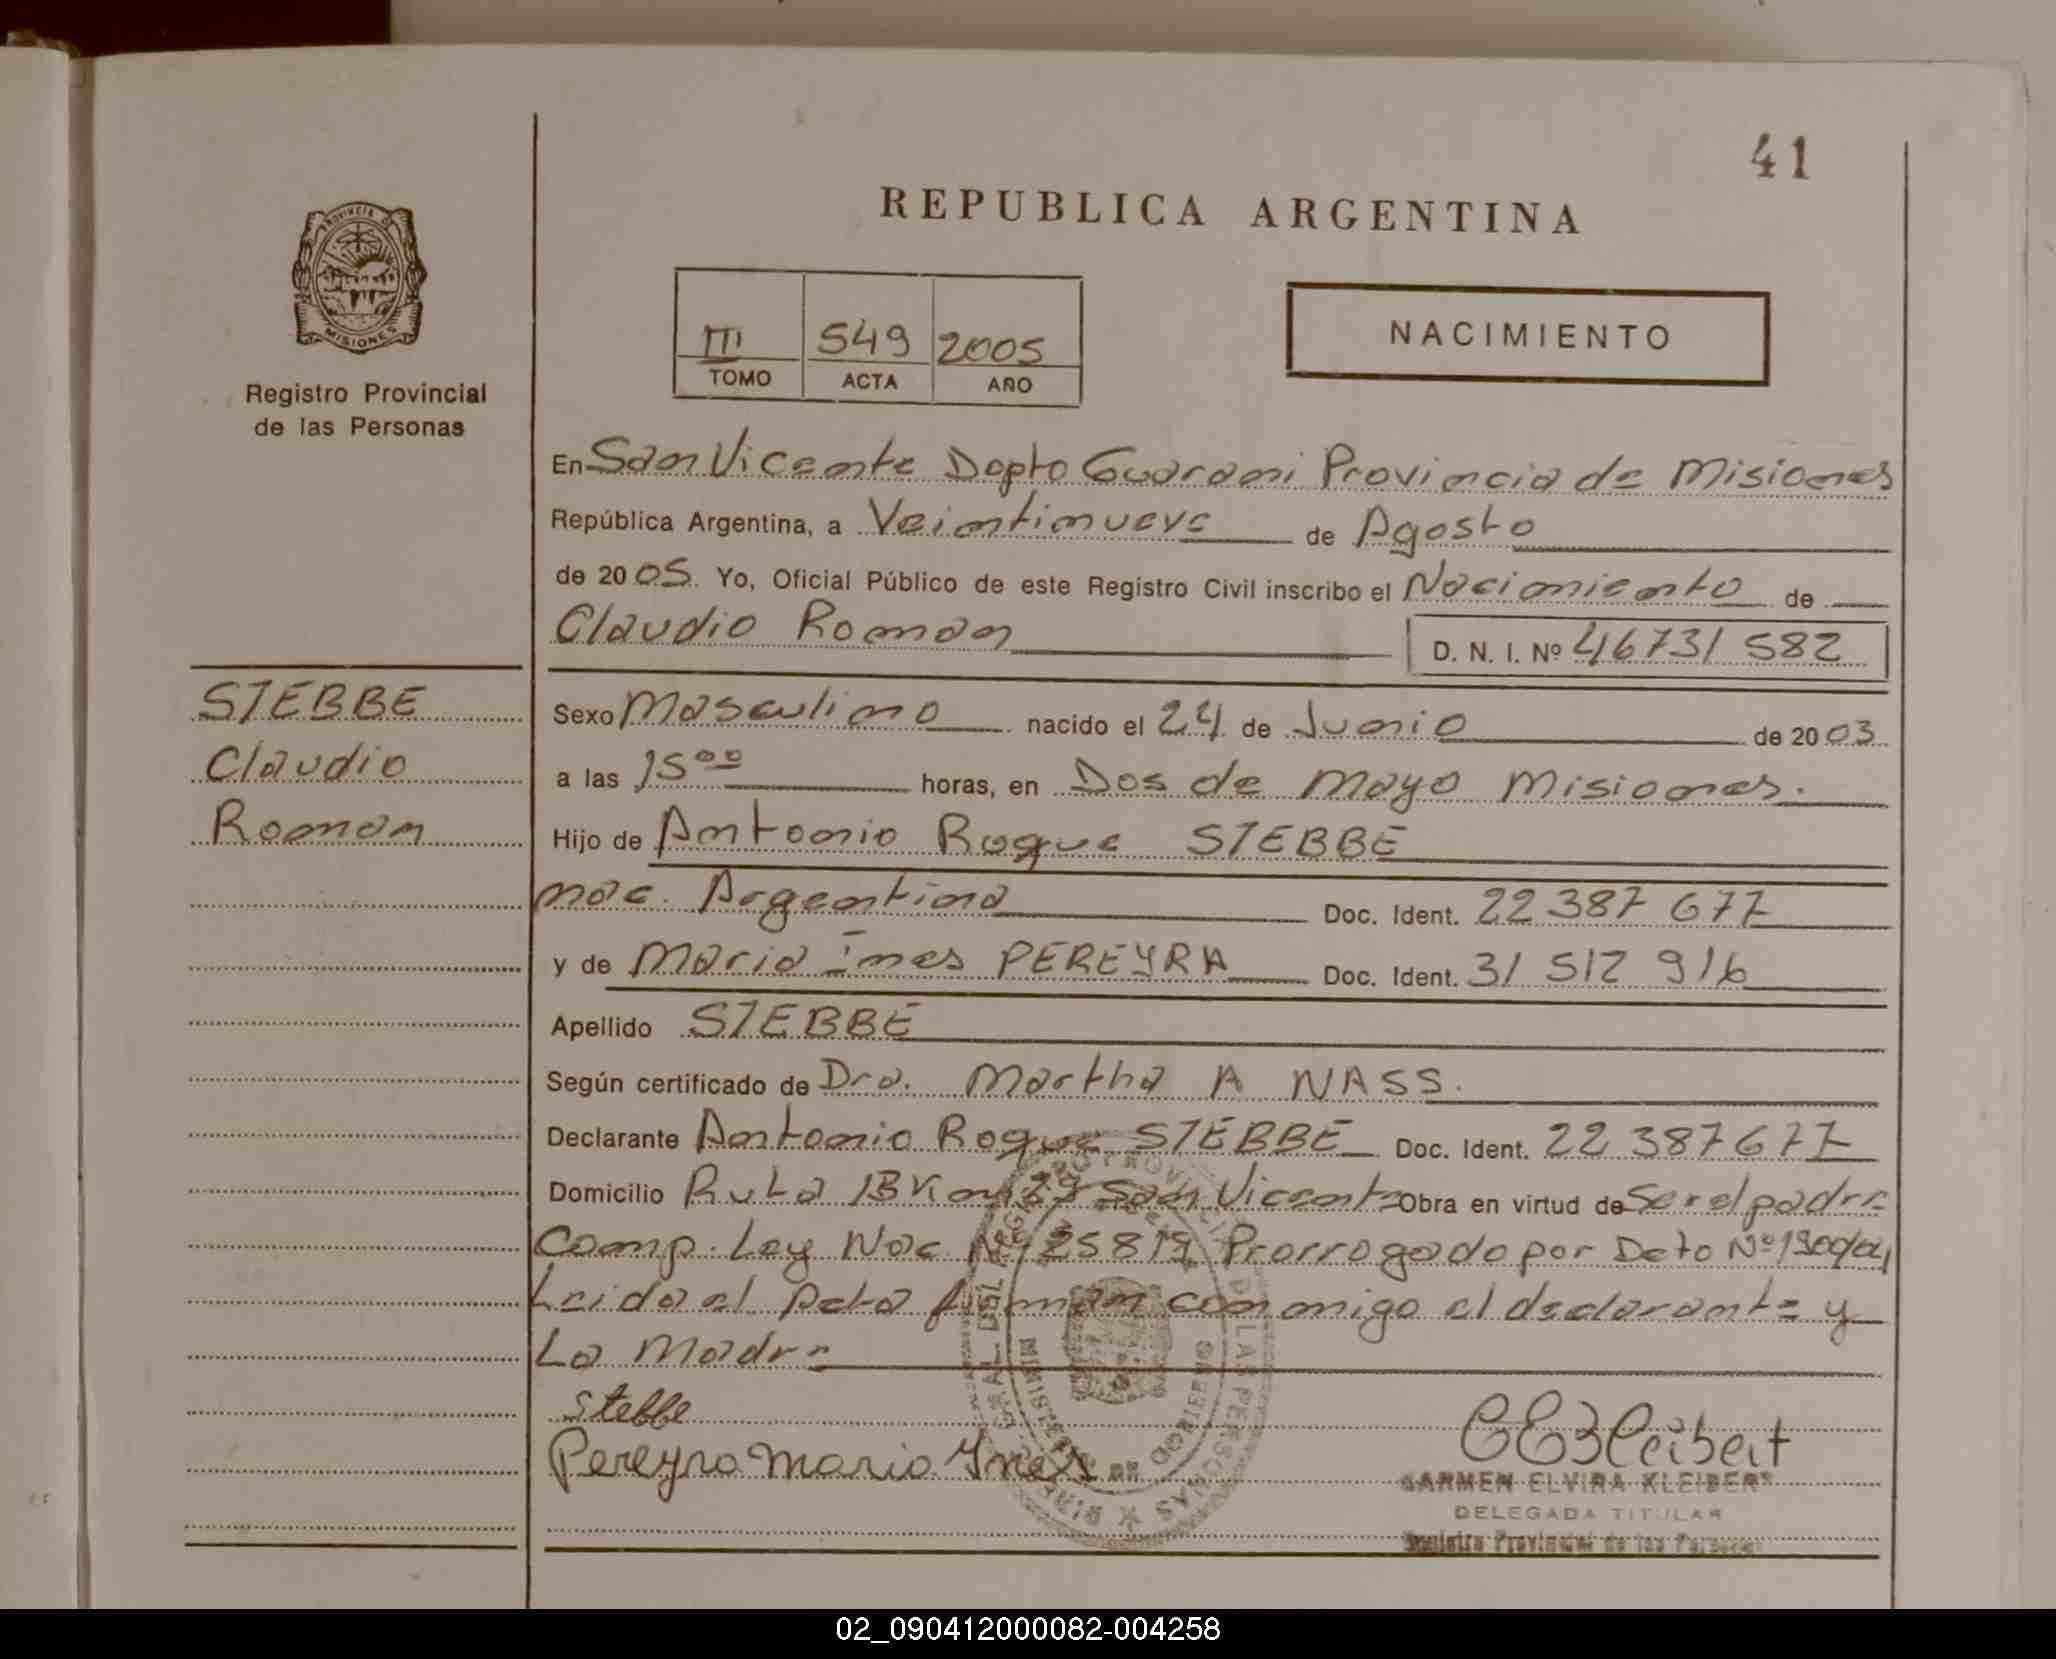 41
REPUBLICA ARGENTINA
PROVINCIA DE
MISIONES
Registro Provincial
de las Personas
III 549 2005
TOMO ACTA AÑO
NACIMIENTO
En San Vicente Depto Guarani Provincia de Misiones
República Argentina, a Veintinueve de Agosto
de 2005. Yo, Oficial Público de este Registro Civil inscribo el Nacimiento de
Claudio Roman D. N. I. Nº 46731582
STEBBE
Claudio
Roman
Sexo Masculino nacido el 24 de Junio de 2003
a las 15 00 horas, en Dos de Mayo Misiones.
Hijo de Antonio Roque STEBBE
nac. Argentina Doc. Ident. 22 387 677
y de Maria Ines PEREYRA Doc. Ident. 31 512 916
Apellido STEBBE
Según certificado de Dra. Martha A NASS.
Declarante Antonio Roque STEBBE Doc. Ident. 22 387677
Domicilio Ruta 13 Km San Vicente Obra en virtud de Ser el padre
Comp. Ley Nac Nº 25819 Prorrogado por Dcto Nº
Leido el Acta firman conmigo el declarante y
La Madre
Stebbe
Pereyra Maria Ines
CEKleibert
CARMEN ELVIRA KLEIBERT
DELEGADA TITULAR
Registro Provincial de las Personas
02_090412000082-004258